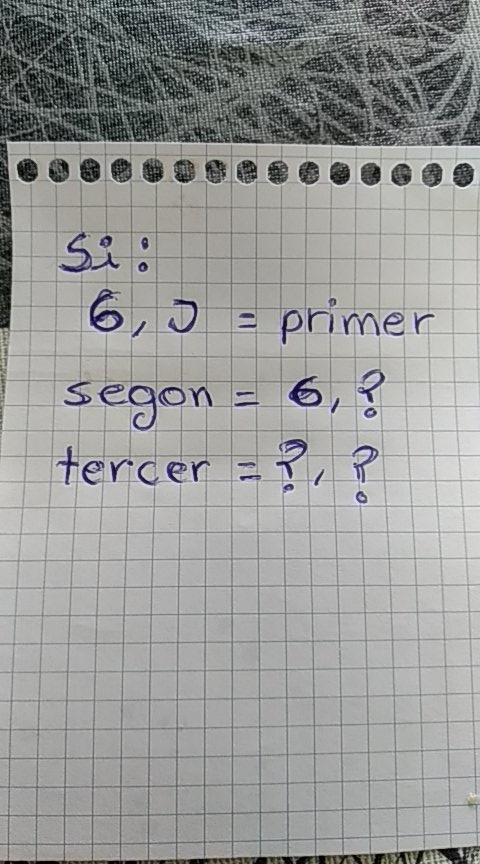 Si:
6, J = primer
segon = 6, ?
tercer = ?, ?